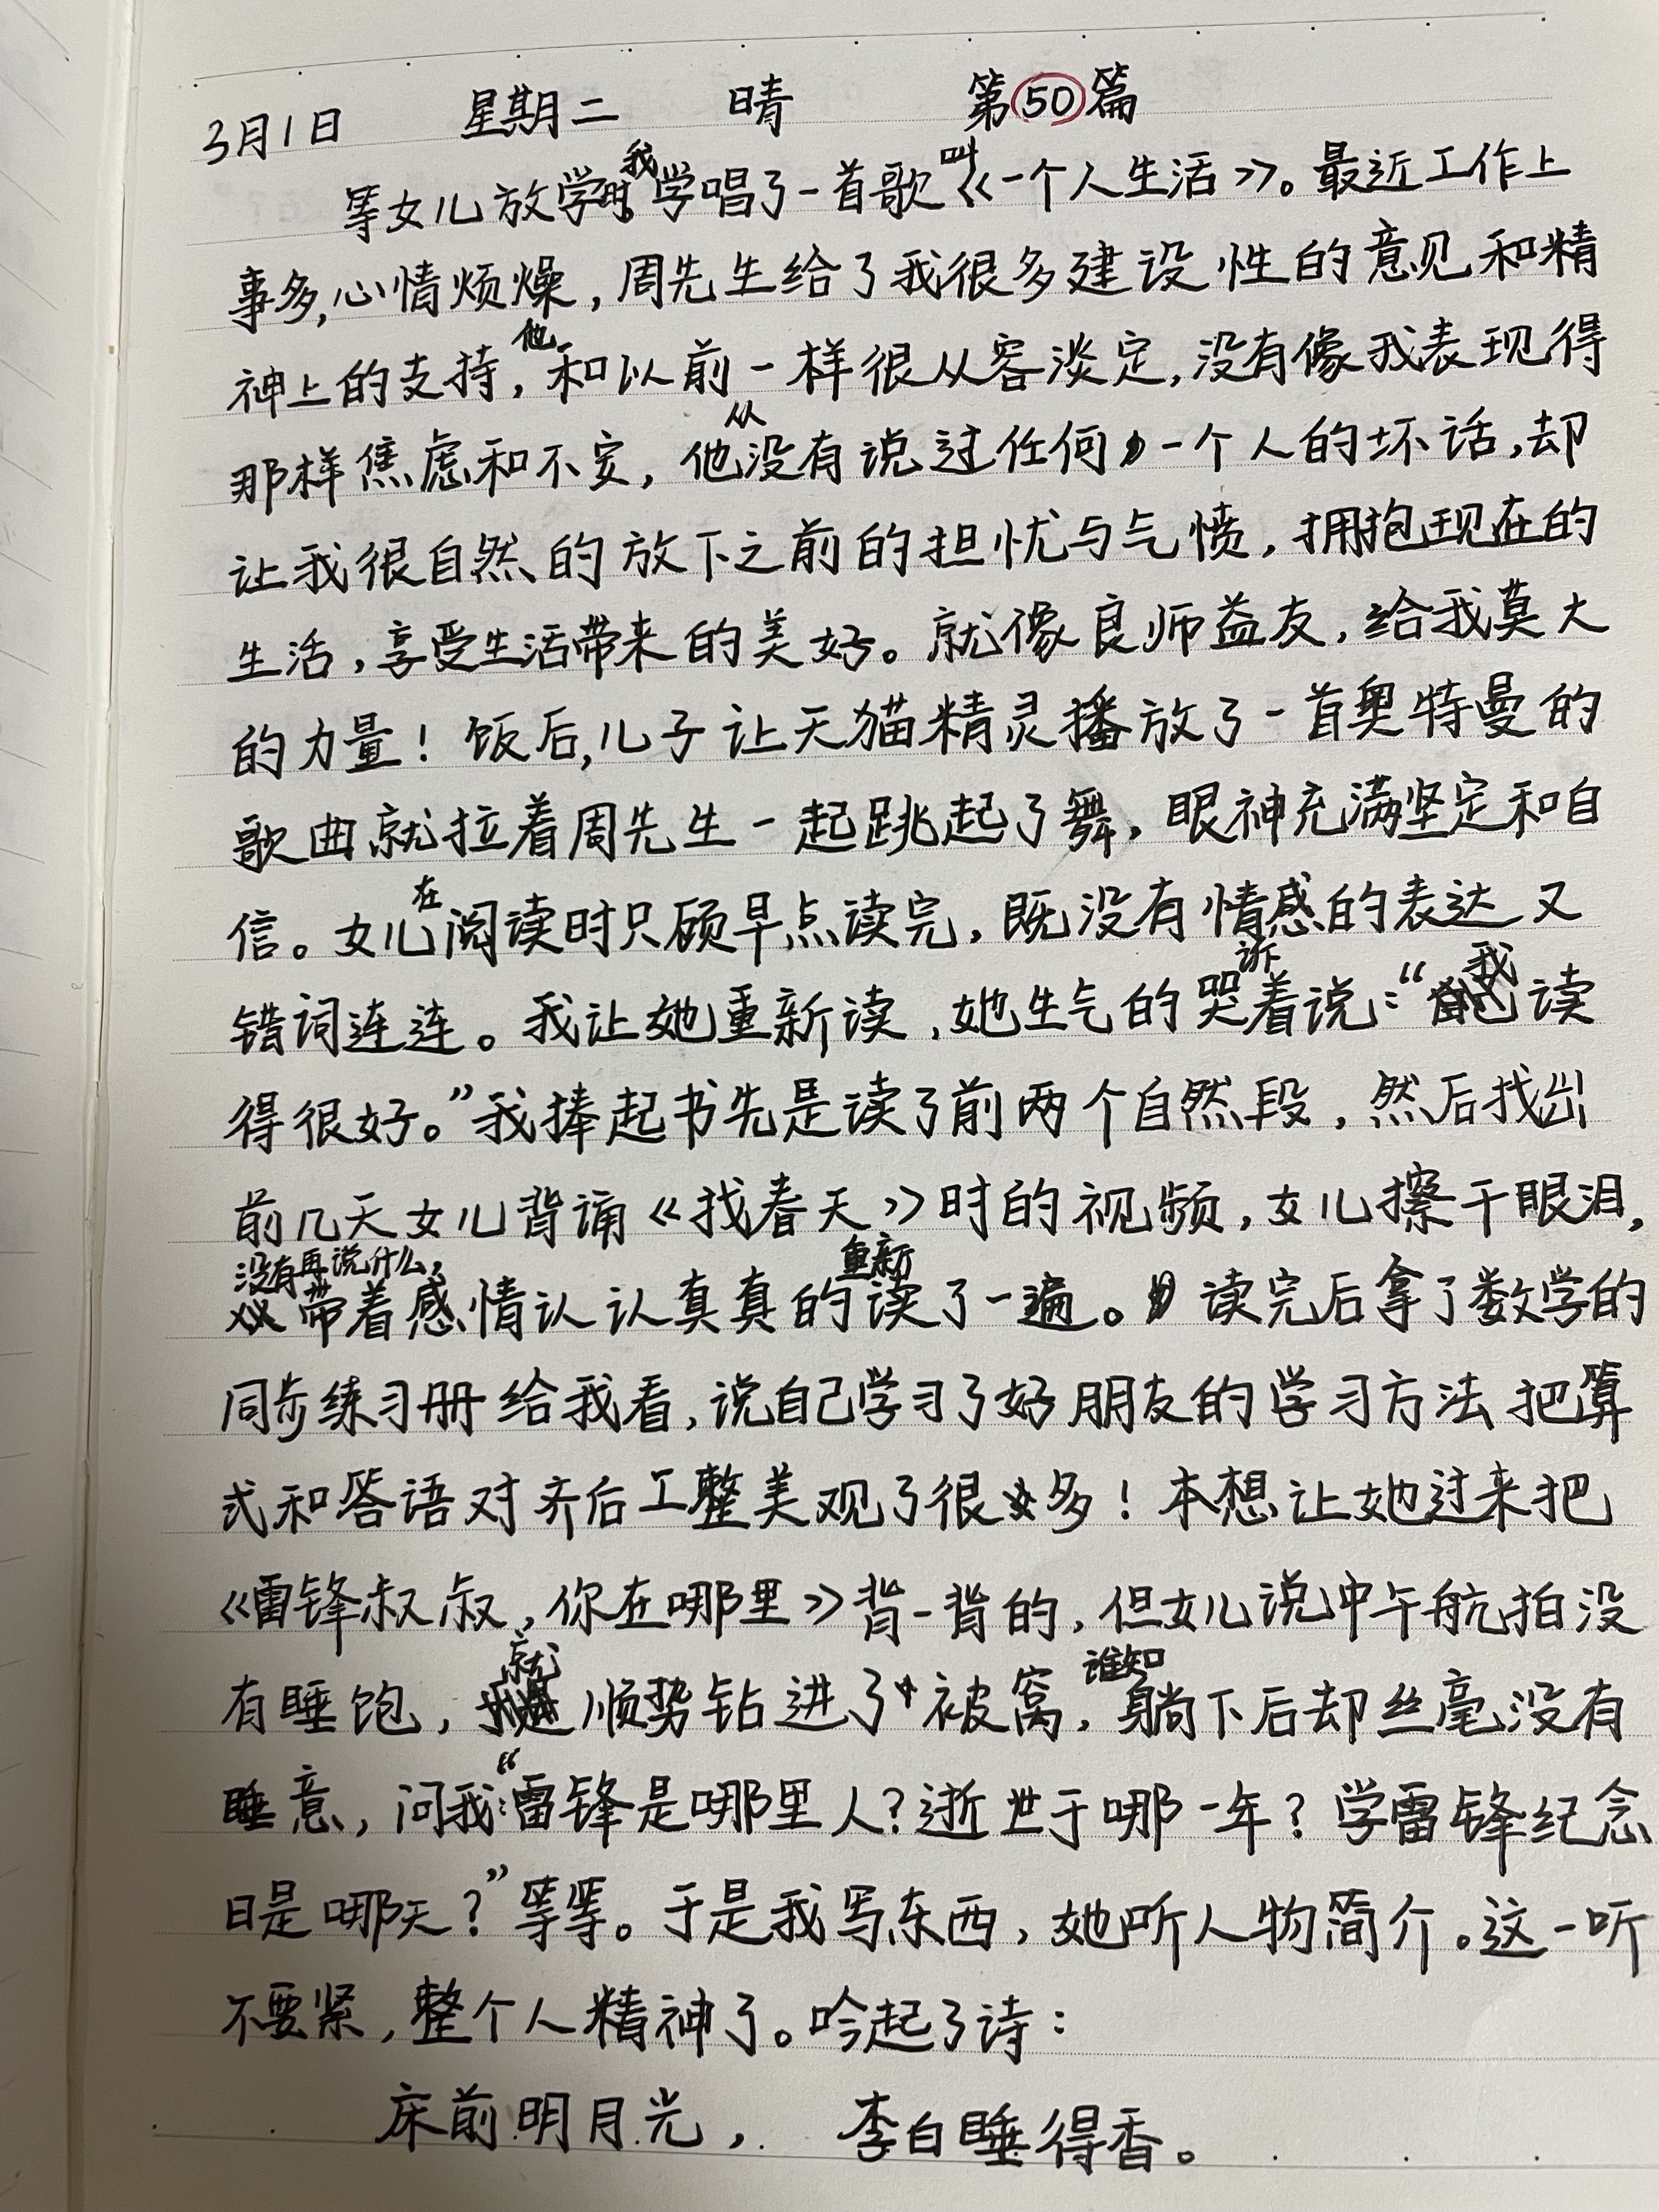 3月1日 星期二 晴 第50篇
等女儿放学时我学唱了一首歌叫《一个人生活》。最近工作上
事多,心情烦燥,周先生给了我很多建设性的意见和精
神上的支持,他和以前一样很从容淡定,没有像我表现得
那样焦虑和不安,他从没有说过任何一个人的坏话,却
让我很自然的放下之前的担忧与气愤,拥抱现在的
生活,享受生活带来的美好。就像良师益友,给我莫大
的力量!饭后,儿子让天猫精灵播放了一首奥特曼的
歌曲就拉着周先生一起跳起了舞,眼神充满坚定和自
信。女儿在阅读时只顾早点读完,既没有情感的表达又
错词连连。我让她重新读,她生气的哭诉着说:“我读
得很好。”我捧起书先是读了前两个自然段,然后找出
前几天女儿背诵《找春天》时的视频,女儿擦干眼泪,
没有再说什么,带着感情认认真真的重新读了一遍。读完后拿了数学的
同步练习册给我看,说自己学习了好朋友的学习方法把算
式和答语对齐后工整美观了很多!本想让她过来把
《雷锋叔叔,你在哪里》背一背的,但女儿说中午航拍没
有睡饱,就顺势钻进了被窝,谁知躺下后却丝毫没有
睡意,问我:“雷锋是哪里人?逝世于哪一年?学雷锋纪念
日是哪天?”等等。于是我写东西,她听人物简介。这一听
不要紧,整个人精神了。吟起了诗:
床前明月光, 李白睡得香。